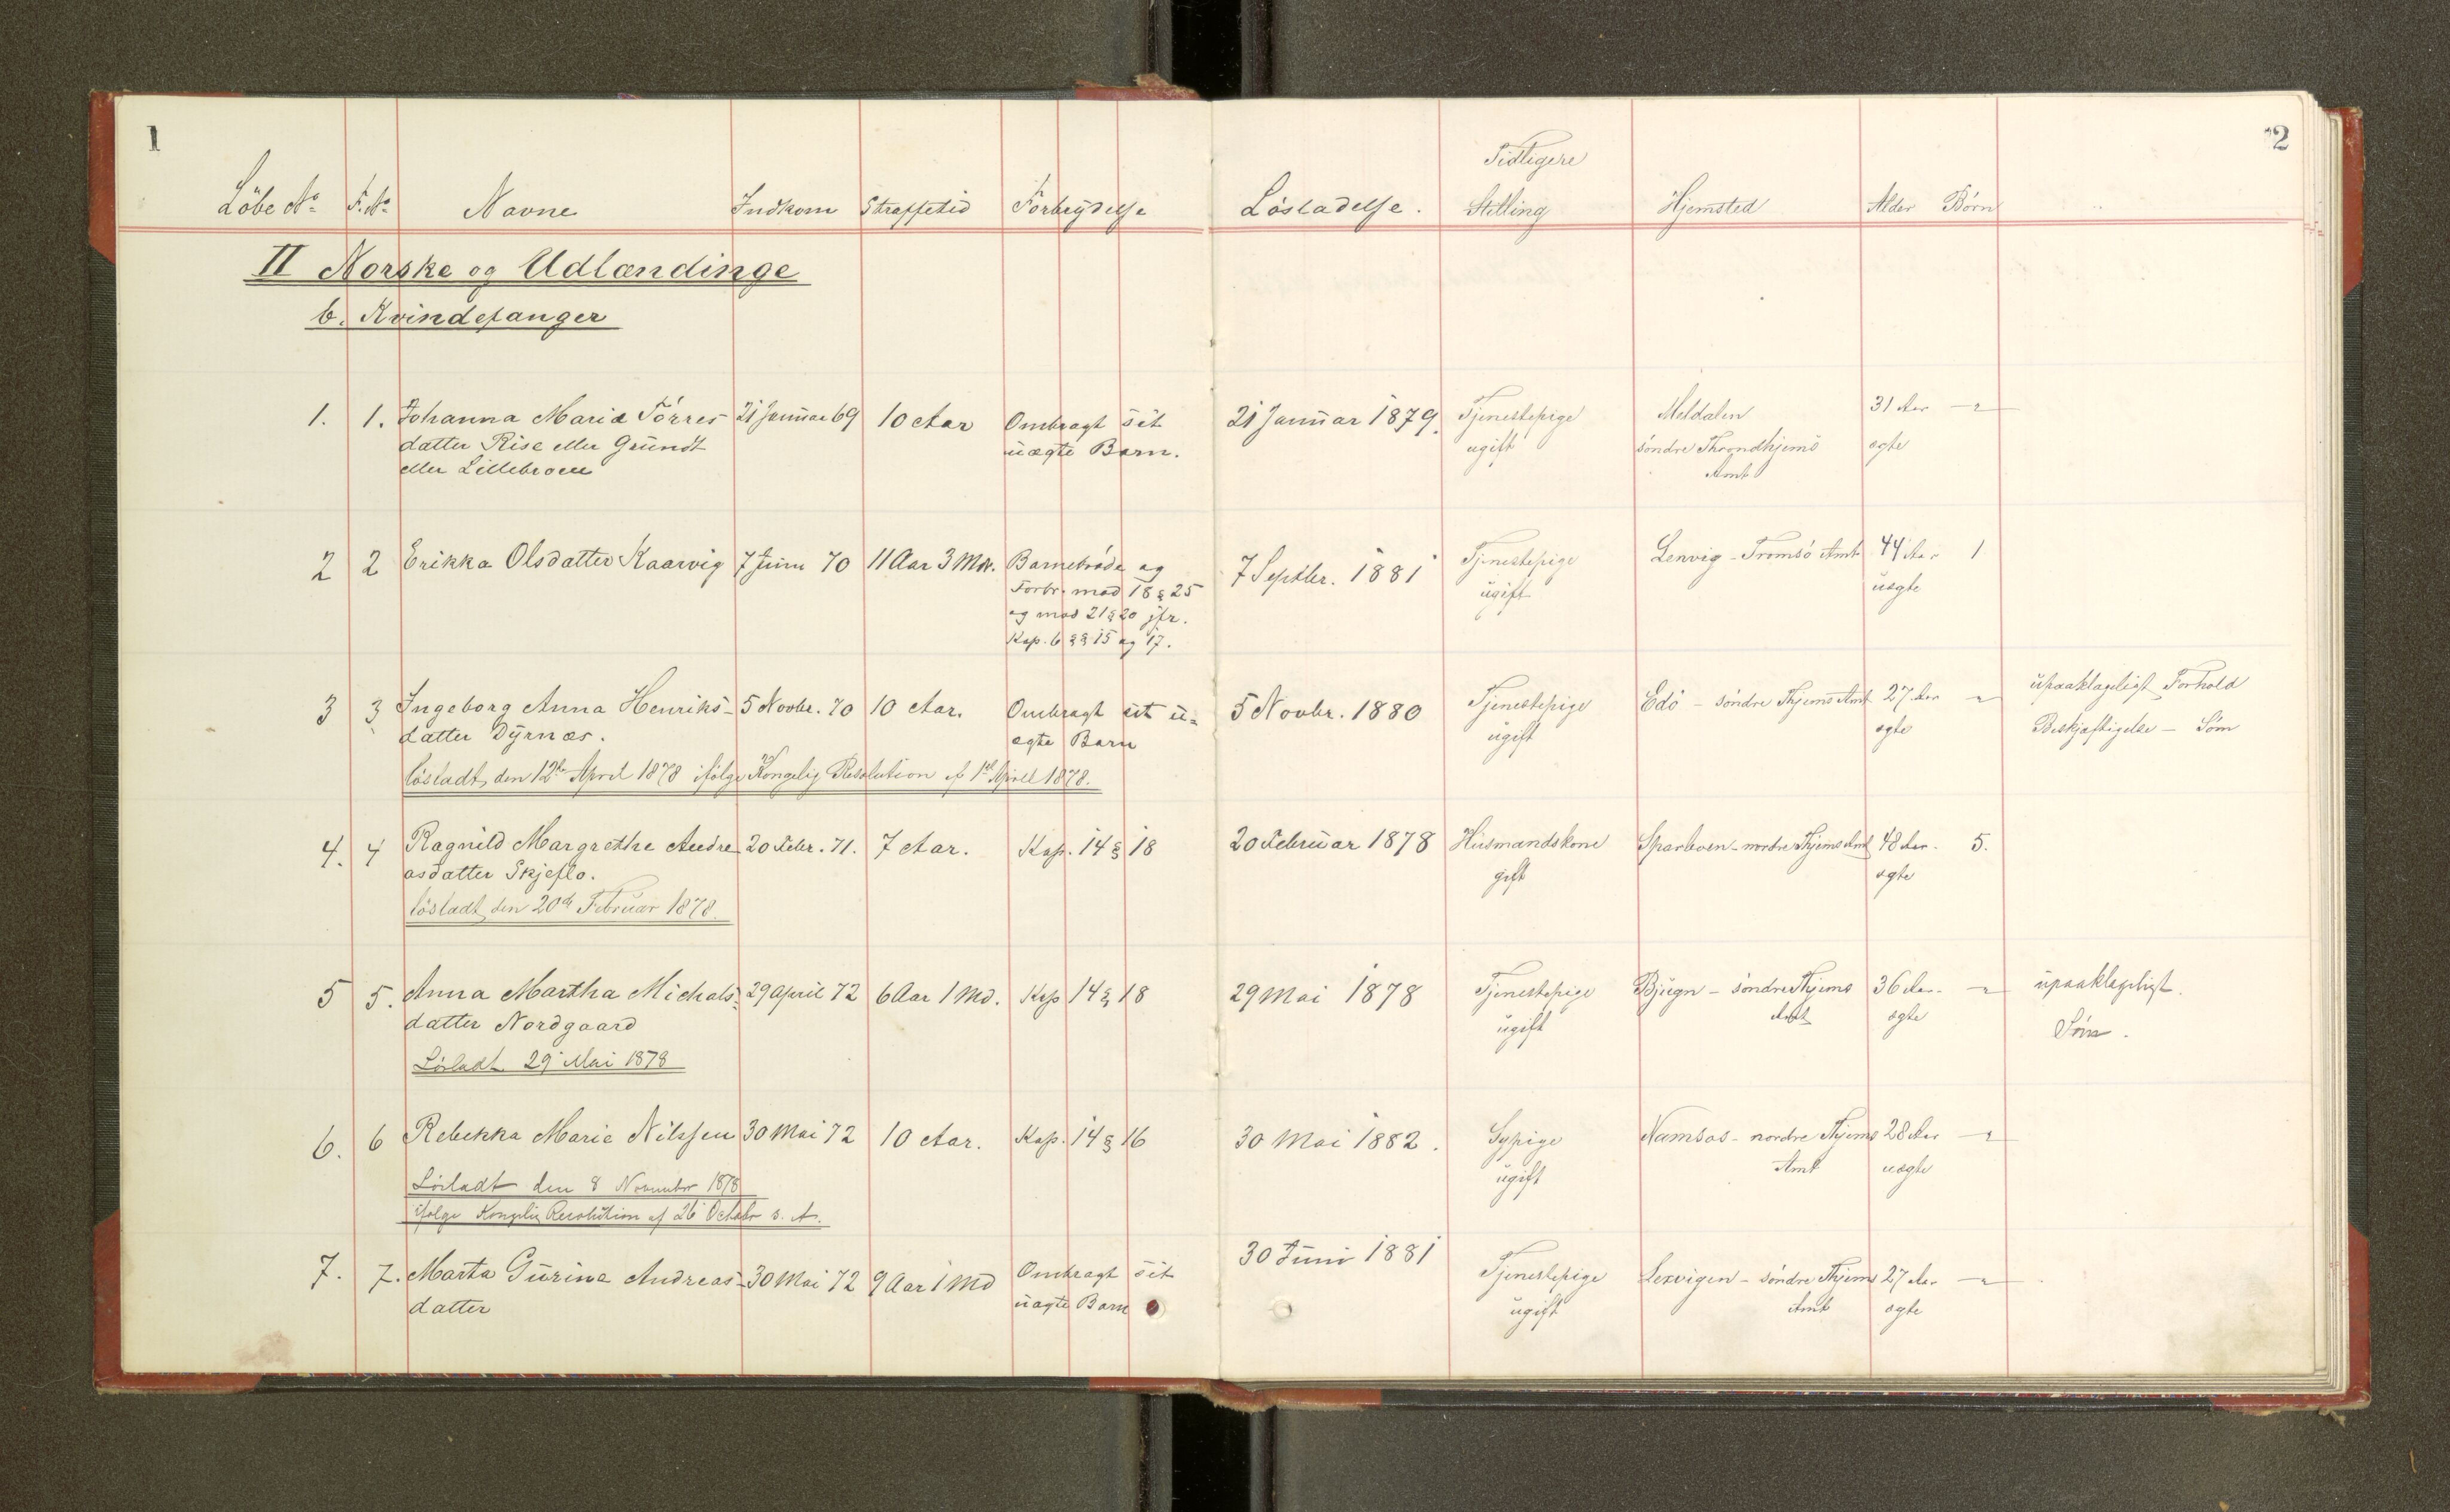 1
2
Tidligere
Löbe No F. No Navne Indkom Straffetid Forbrydelse Lösladelse. Stilling Hjemsted Alder Börn
II Norske og Udlændinge
b. Kvindefanger
1. 1. Johanna Maria Törres- 21 Januar 69 10 Aar Ombragt sit 21 Januar 1879. Tjenestepige Meldalen 31 Aar -"-
datter Rise eller Grundt uægte Barn. ugift söndre Throndhjems ægte
eller Lillebroen Amt
2 2 Erikka Olsdatter Kaarvig 7 Juni 70 11 Aar 3 Mdr. Barnefödse og 7 Septbr. 1881 Tjenestepige Lenvig - Tromsö Amt 44 Aar 1
Forbr. mod 18 § 25 ugift uægte
og mod 21 § 20 jfr.
Kap. 6 §§ 15 og 17.
3 3 Ingeborg Anna Henriks- 5 Novbr. 70 10 Aar. Ombragt sit u- 5 Novbr. 1880 Tjenestepige Edö - söndre Thjems Amt 27 Aar -"- upaaklageligt Forhold
datter Dyrnæs. ægte Barn ugift ægte Beskjæftigelse - Söm
lösladt den 12te April 1878 ifölge Kongelig Resolution af 1ste April 1878.
4. 4 Ragnild Margrethe Andre 20 Febr. 71. 7 Aar. Kap. 14 § 18 20 Februar 1878 Husmandskone Sparboen - nordre Thjems Amt 48 Aar. 5.
asdatter Skjeflo. gift ægte
lösladt den 20de Februar 1878.
5 5. Anna Martha Michals- 29 April 72 6 Aar 1 Md. Kap 14 § 18 29 Mai 1878 Tjenestepige Bjugn - söndre Thjems 36 Aar. -"- upaaklageligt.
datter Nordgaard ugift Amt ægte Söm.
Lösladt 29 Mai 1878
6. 6 Rebekka Marie Nilssen 30 Mai 72 10 Aar. Kap. 14 § 16 30 Mai 1882. Sypige Namsos - nordre Thjems 28 Aar -"-
ugift Amt uægte
Lösladt den 8 November 1878
ifölge Kongelig Resolution af 26 October s. A.
7. 7. Marta Gurine Andreas- 30 Mai 72 9 Aar 1 Md Ombragt sit 30 Juni 1881 Tjenestepige Lexvigen - söndre Thjems 27 Aar -"-
datter uægte Barn ugift Amt ægte